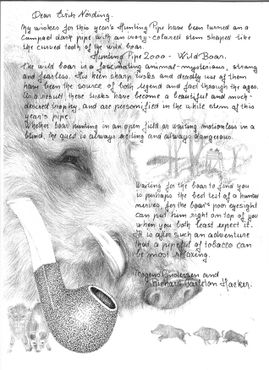 Dear Erik Nørding.
My wishes for this year's Hunting Pipe have been turned on a
compact dark pipe with an ivory-colored stem shaped like
the curved tooth of the wild boar.
Hunting Pipe 2000 - Wild Boar.
The wild boar is a fascinating animal - mysterious, strong
and fearless. His keen sharp tusks and deadly use of them
have been the source of both legend and fact through the ages.
As a result these tusks have become a beautiful and much-
desired trophy, and are personified in the white stem of this
year's pipe.
Whether boar hunting in an open field or waiting motionless in a
blind, the quest is always exciting and always dangerous.
Waiting for the boar to find you
is perhaps the best test of a hunter's
nerves, for the boar's poor eyesight
can put him right on top of you
when you both least expect it.
It is after such an adventure
that a pipeful of tobacco can
be most relaxing.
Mogens Andresen and
Richard Carleton Hacker.